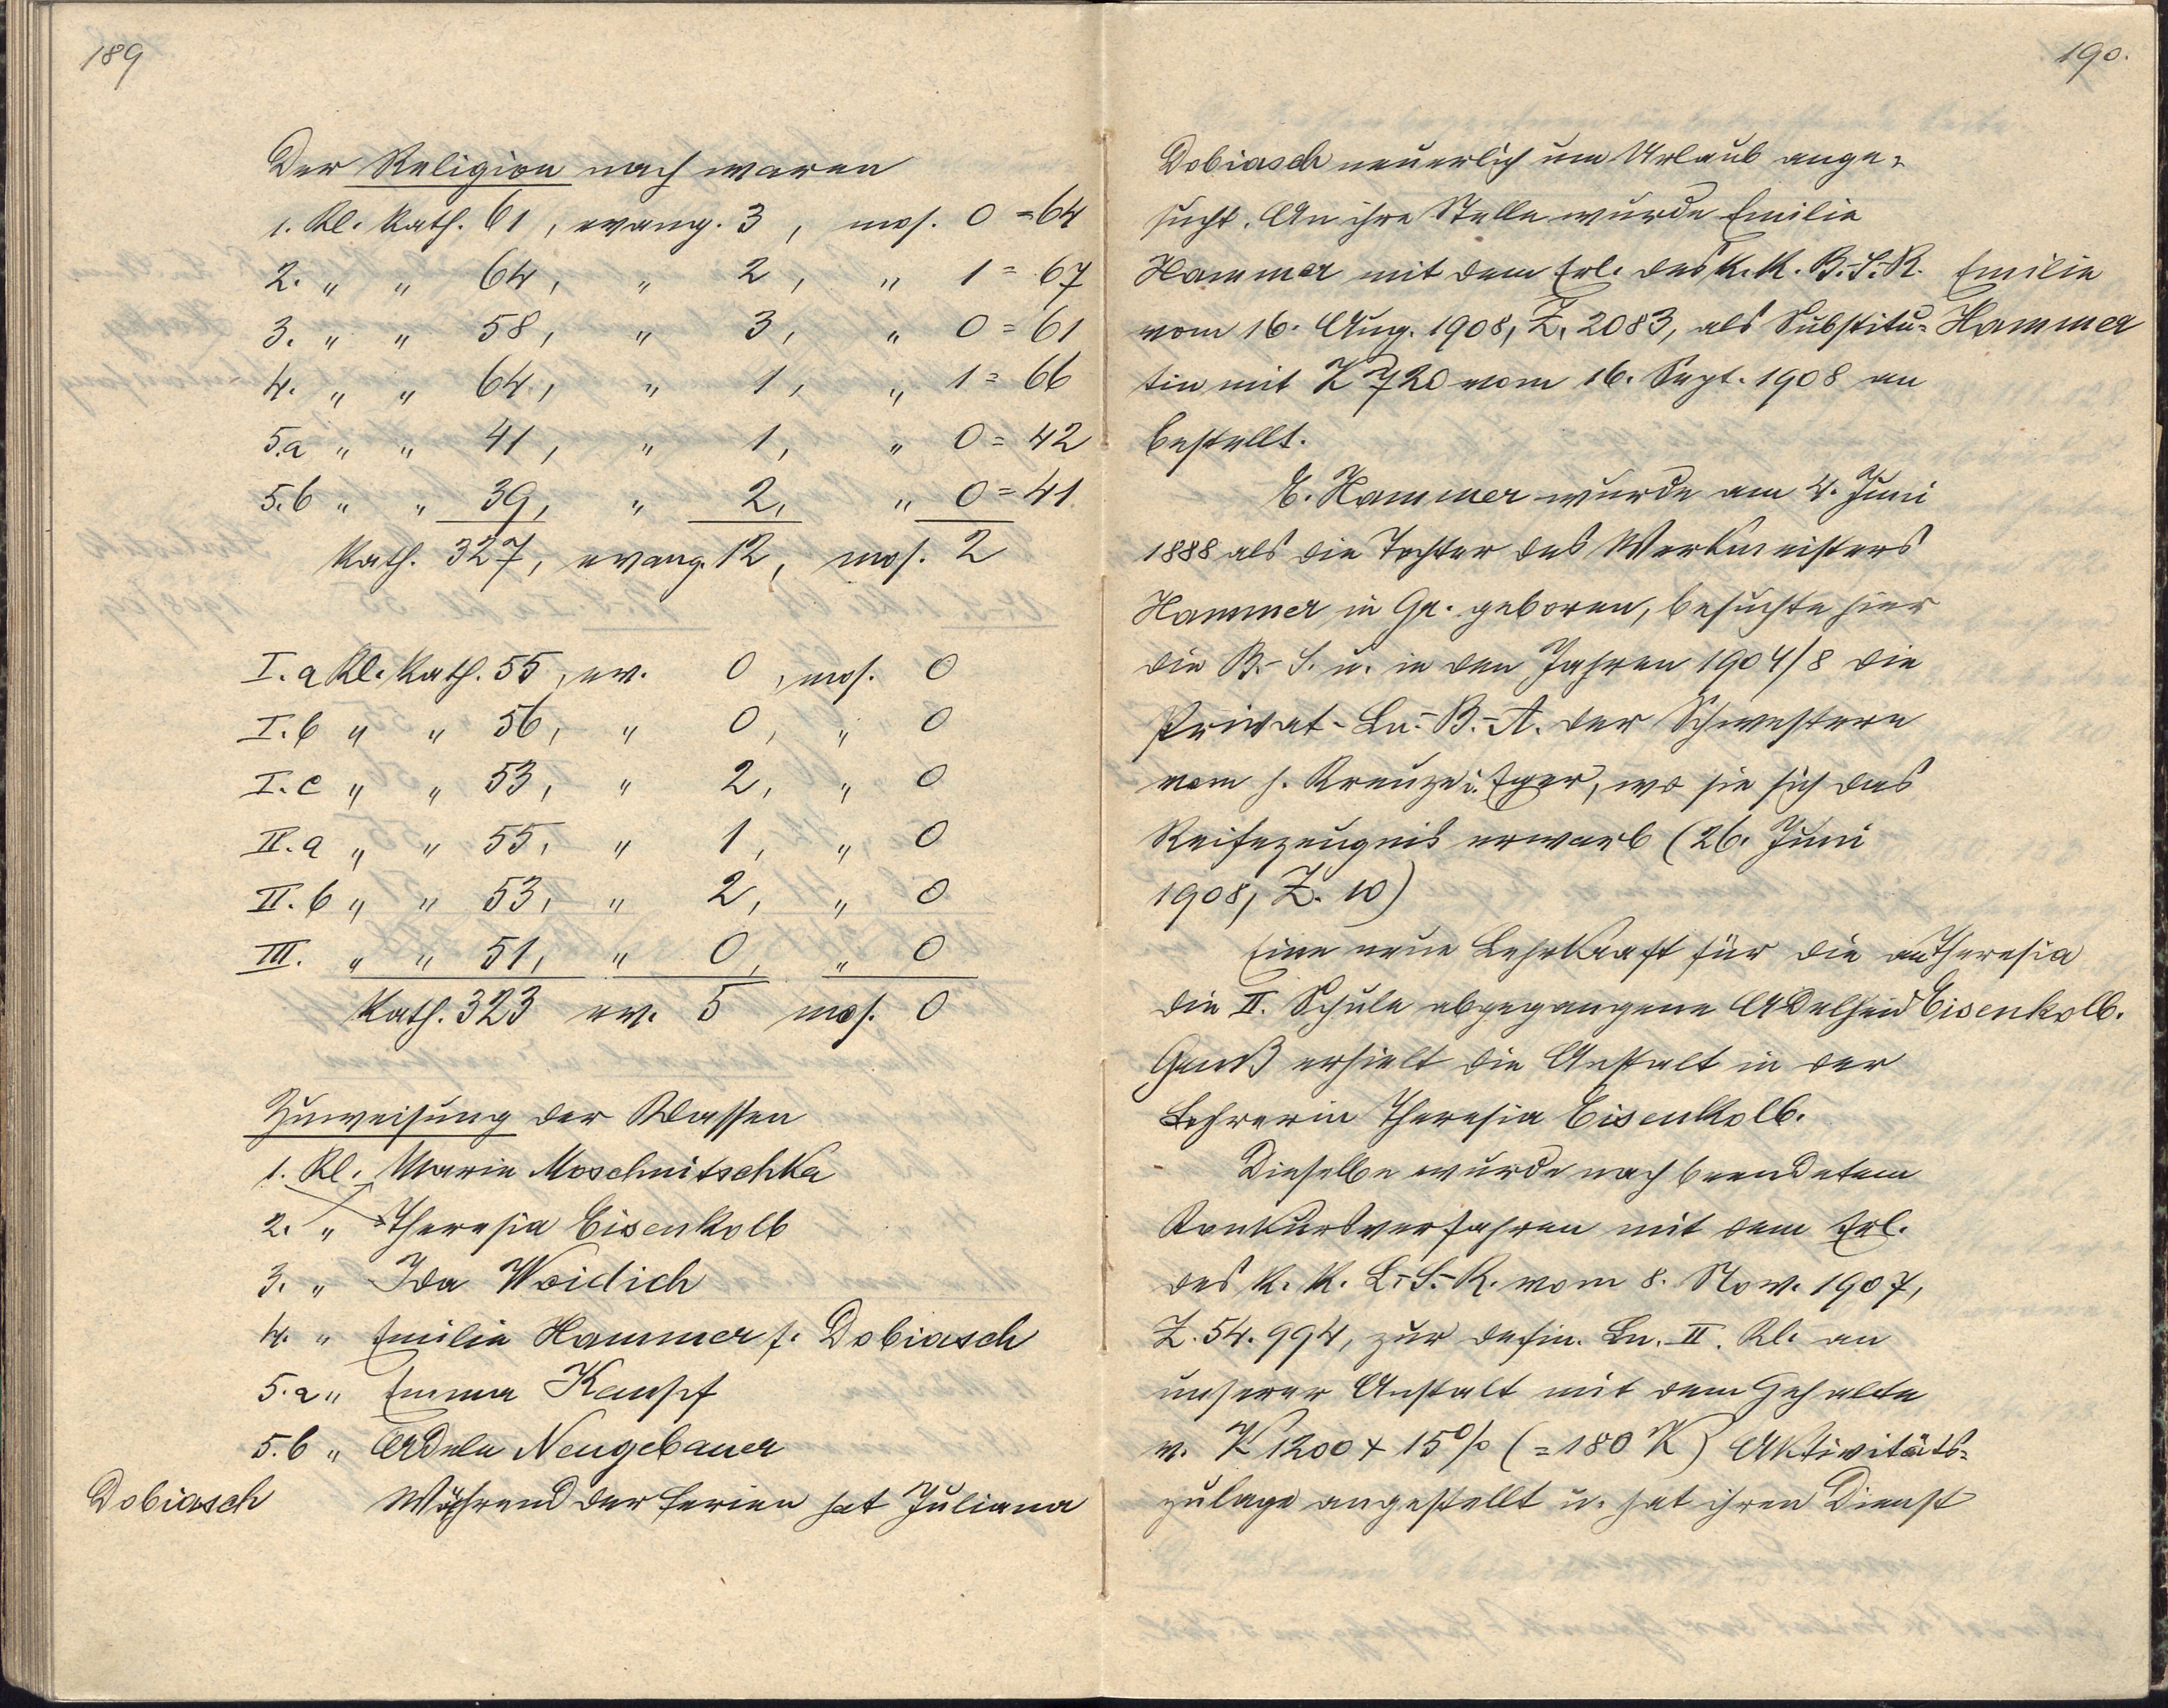 189
Der Religion nach waren
1. Kl. Kath. 61, evang. 3, mos. 0 = 64
2. " " 64, " 2, " 1 = 67
3. " " 58, " 3, " 0 = 61
4. " " 64, " 1, " 1 = 66
5.a " " 41, " 1, " 0 = 42
5.b " " 39, " 2, " 0 = 41
Kath. 327, evang. 12, mos. 2
I. a Kl. Kath. 55, ev. 0, mos. 0
I. b " " 56, " 0, " 0
I. c " " 53, " 2, " 0
II. a " " 55, " 1, " 0
II. b " " 53, " 2, " 0
III. " " 51, " 0, " 0
Kath. 323 ev. 5 mos. 0
Zuweisung der Klassen
1. Kl. Marie Moschnitschka
2. " Theresia Eisenkolb
3. " Ida Woidich
4. " Emilie Hammer f. Dobiasch
5.a " Emma Kempf
5.b " Adele Neugebauer
Dobiasch Während der Ferien hat Juliana
190.
Dobiasch neuerlich um Urlaub ange-
sucht. An ihre Stelle wurde Emilie
Hammer mit dem Erl. des k. k. B.-S.-R. Emilie
vom 16. Aug. 1908, Z. 2083, als Substitu- Hammer
tin mit K 720 vom 16. Sept. 1908 an
bestellt.
E. Hammer wurde am 4. Juni
1888 als die Tochter des Werkmeisters
Hammer in Gr. geboren, besuchte hier
die B.-S. u. in den Jahren 1904/8 die
Privat-Ln.-B.-A. der Schwestern
vom h. Kreuze i. Eger, wo sie sich das
Reifezeugnis erwarb (26. Juni
1908, Z. 10)
Eine neue Lehrkraft für die an Theresia
die II. Schule abgegangene Adelheid Eisenkolb.
Gauß erhielt die Anstalt in der
Lehrerin Theresia Eisenkolb.
Dieselbe wurde nach beendetem
Konkursverfahren mit dem Erl.
des k. k. L.-S.-R. vom 8. Nov. 1907,
Z. 54.994, zur defin. Ln. II. Kl. an
unserer Anstalt mit dem Gehalte
v. K 1200 + 15% (= 180 K) Aktivitäts-
zulage angestellt u. hat ihren Dienst